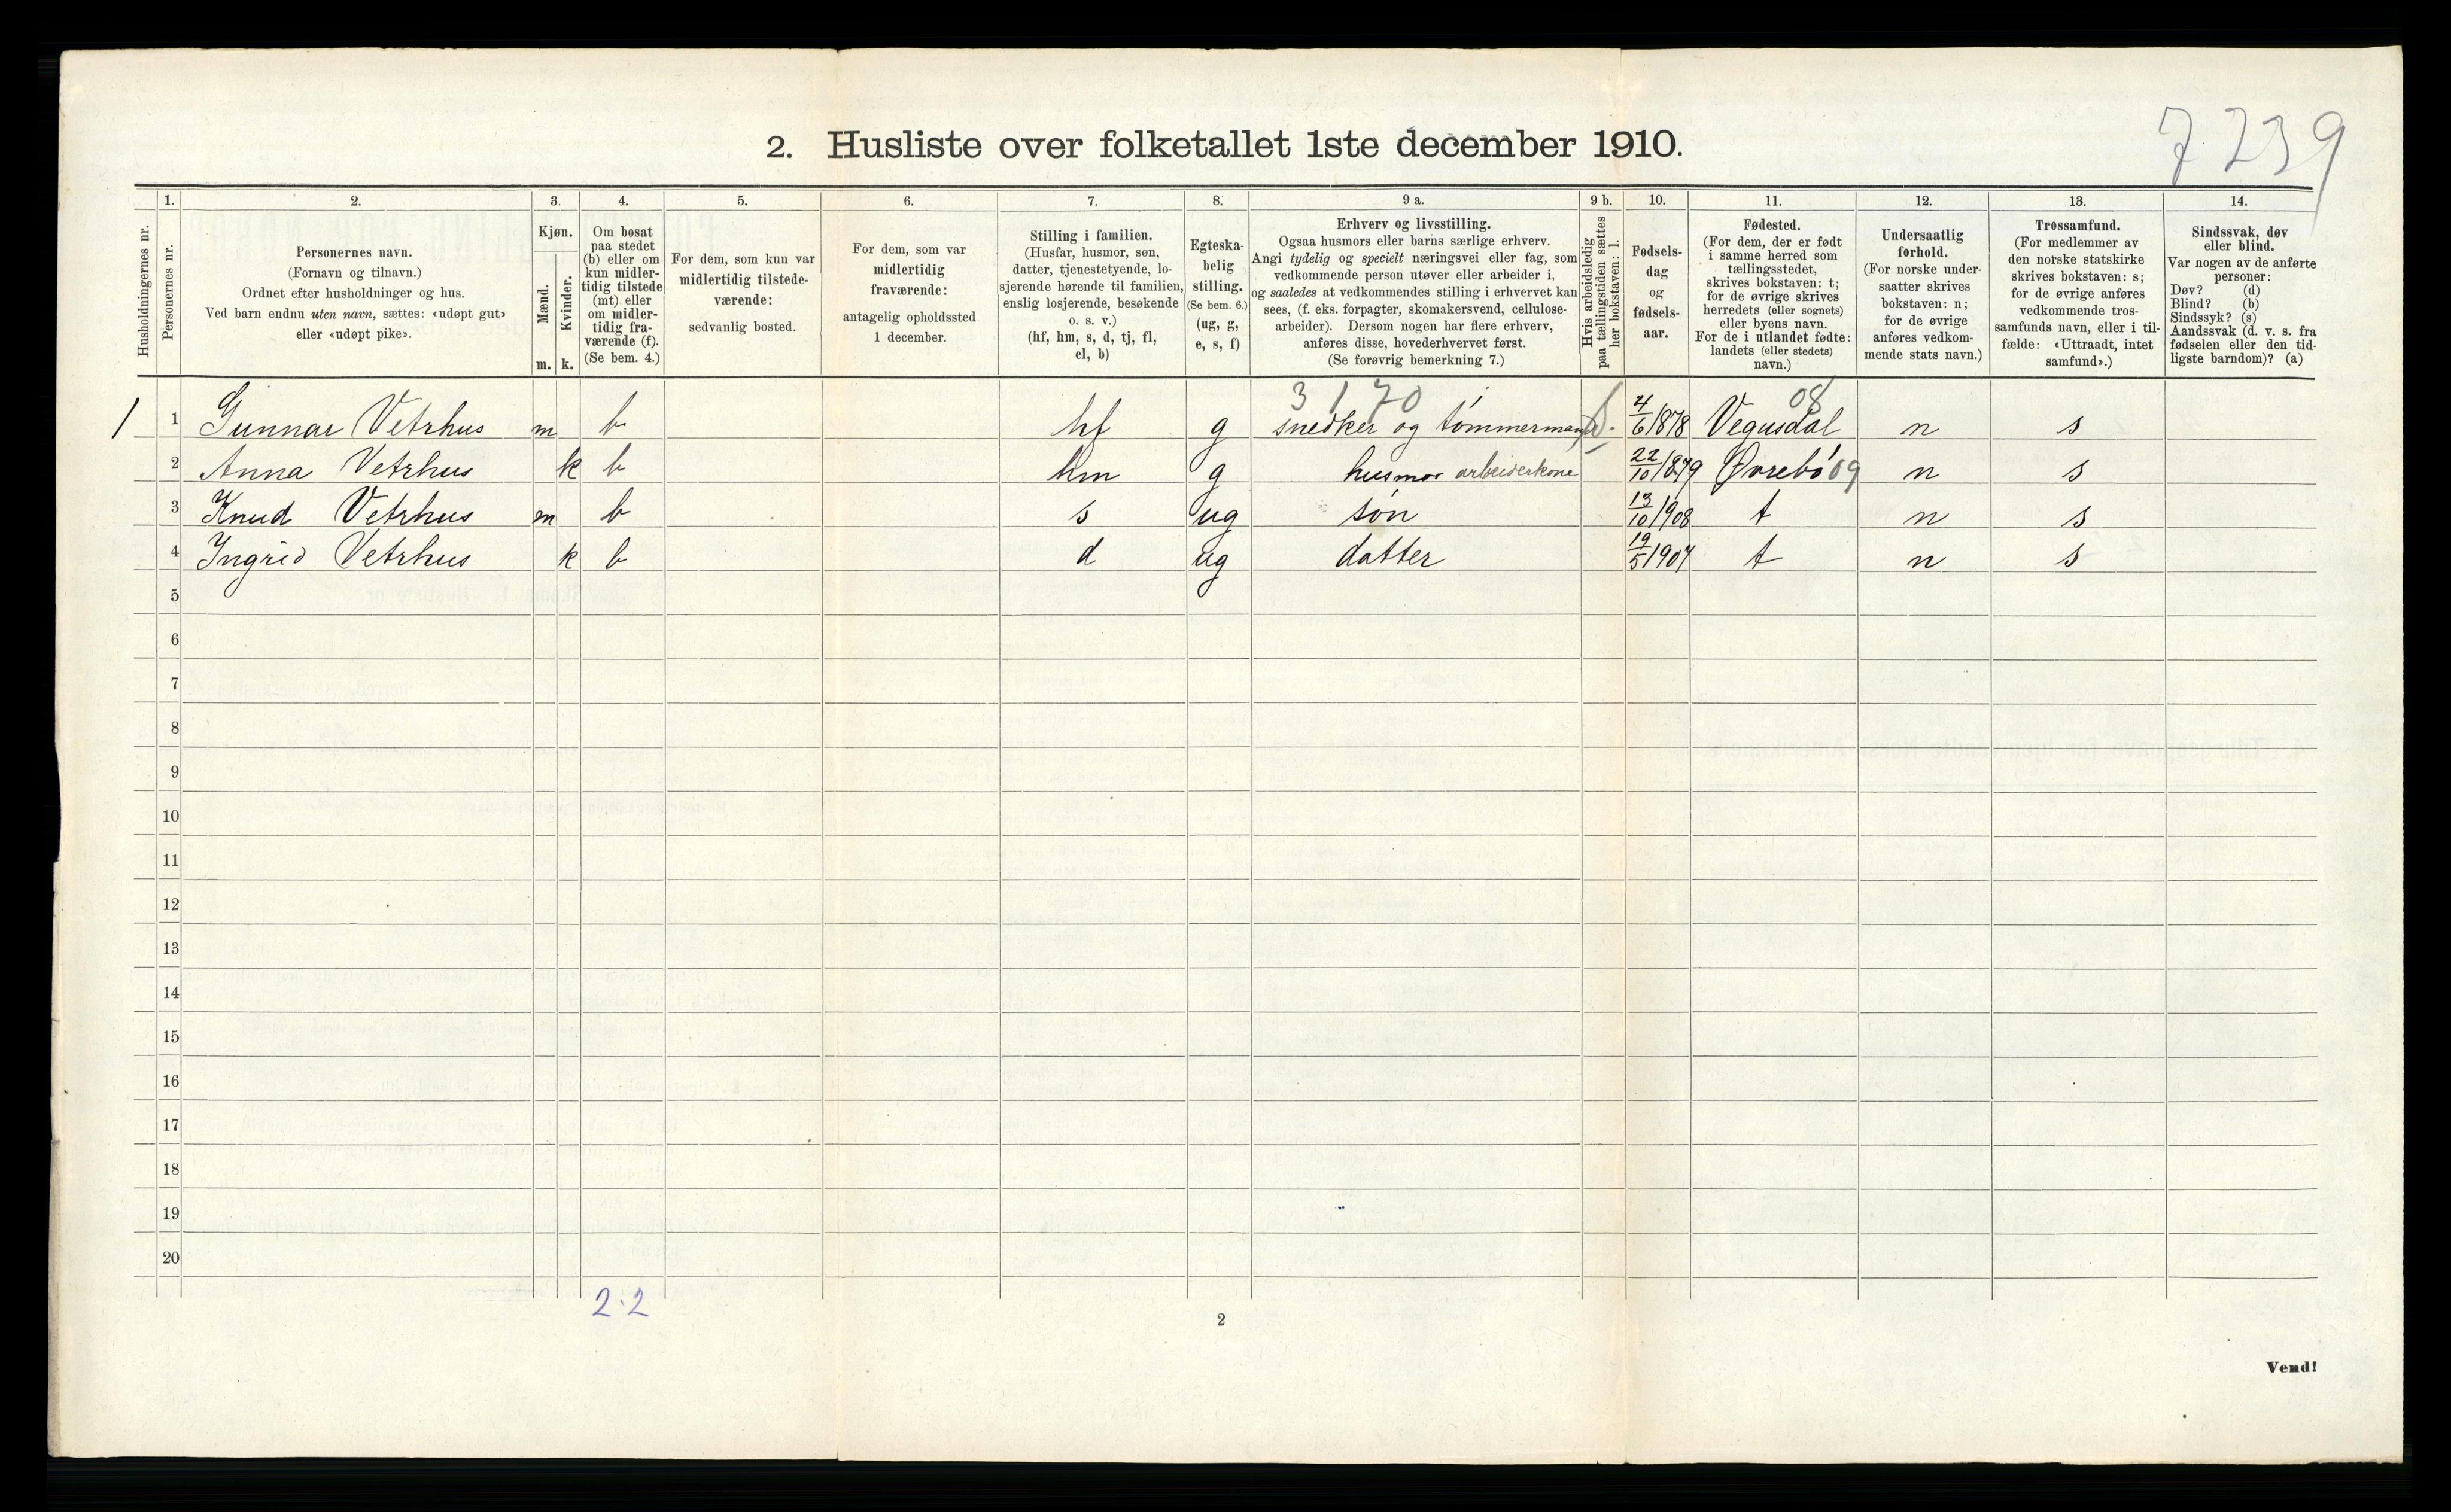 7239
2. Husliste over folketallet 1ste december 1910.
Husholdningernes nr.
1.
Personernes nr.
2.
Personernes navn.
(Fornavn og tilnavn.)
Ordnet efter husholdninger og hus.
Ved barn endnu uten navn, sættes: «udøpt gut»
eller «udøpt pike».
3.
Kjøn.
Mænd.
m.
Kvinder.
k.
4.
Om bosat
paa stedet
(b) eller om
kun midler-
tidig tilstede
(mt) eller
om midler-
tidig fra-
værende (f).
(Se bem. 4.)
5.
For dem, som kun var
midlertidig tilstede-
værende:
sedvanlig bosted.
6.
For dem, som var
midlertidig
fraværende:
antagelig opholdssted
1 december.
7.
Stilling i familien.
(Husfar, husmor, søn,
datter, tjenestetyende, lo-
sjerende hørende til familien,
enslig losjerende, besøkende
o. s. v.)
(hf, hm, s, d, tj, fl,
el, b)
8.
Egteska-
belig
stilling.
(Se bem. 6.)
(ug, g,
e, s, f)
9 a.
Erhverv og livsstilling.
Ogsaa husmors eller barns særlige erhverv.
Angi tydelig og specielt næringsvei eller fag, som
vedkommende person utøver eller arbeider i,
og saaledes at vedkommendes stilling i erhvervet kan
sees, (f. eks. forpagter, skomakersvend, cellulose-
arbeider). Dersom nogen har flere erhverv,
anføres disse, hovederhvervet først.
(Se forøvrig bemerkning 7.)
9 b.
Hvis arbeidsledig
paa tællingstiden sættes
her bokstaven: l.
10.
Fødsels-
dag
og
fødsels-
aar.
11.
Fødested.
(For dem, der er født
i samme herred som
tællingsstedet,
skrives bokstaven: t;
for de øvrige skrives
herredets (eller sognets)
eller byens navn.
For de i utlandet fødte:
landets (eller stedets)
navn.)
12.
Undersaatlig
forhold.
(For norske under-
saatter skrives
bokstaven: n;
for de øvrige
anføres vedkom-
mende stats navn.)
13.
Trossamfund.
(For medlemmer av
den norske statskirke
skrives bokstaven: s;
for de øvrige anføres
vedkommende tros-
samfunds navn, eller i til-
fælde: «Uttraadt, intet
samfund».)
14.
Sindssvak, døv
eller blind.
Var nogen av de anførte
personer:
Døv? (d)
Blind? (b)
Sindssyk? (s)
Aandssvak (d. v. s. fra
fødselen eller den tid-
ligste barndom)? (a)
3170 08
1 1 Gunnar Vetrhus m b hf g snedker og tømmermand 4/6 1878 Vegusdal n s
2 Anna Vetrhus k b hm g husmor arbeiderkone 22/10 1879 Øvrebø 09 n s
3 Knud Vetrhus m b s ug søn 13/10 1908 t n s
4 Ingrid Vetrhus k b d ug datter 19/5 1907 t n s
5
6
7
8
9
10
11
12
13
14
15
16
17
18
19
20
2·2
2
Vend!